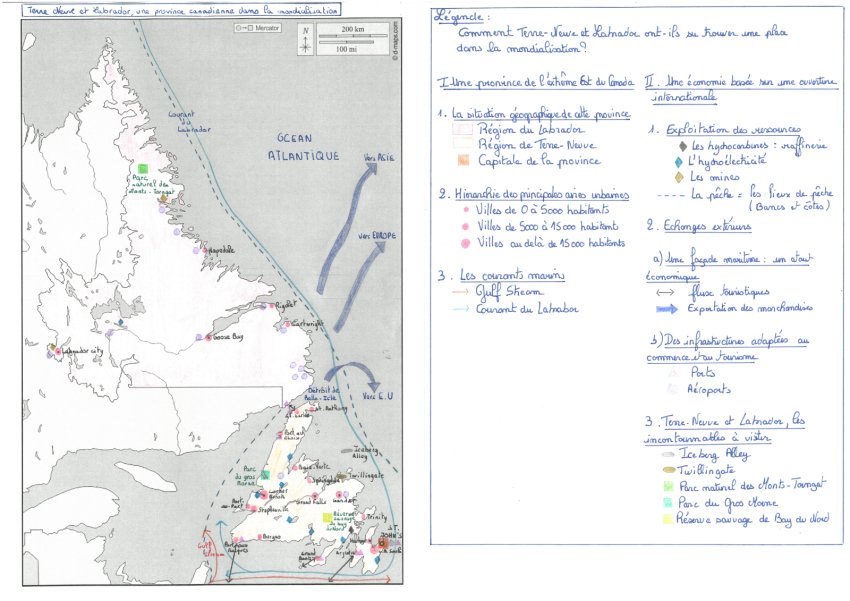 Terre Neuve et Labrador, une province canadienne dans la mondialisation
Mercator
N
200 km
100 mi
© d-maps.com
Courant
du
Labrador
OCEAN
ATLANTIQUE
Vers ASIE
Vers EUROPE
Parc
naturel des
Monts-Torngat
Hopedale
Rigolet
Cartwright
Goose Bay
Labrador city
Détroit de
Belle-Isle
Vers E.U
St. Anthony
Port au
choix
Iceberg
Alley
Baie-Verte
Twillingate
Parc
du gros
Morne
Corner
Brook
Grand Falls
Gander
Stephenville
Réserve
sauvage
de bay
du Nord
Trinity
ST.
JOHN'S
Burgeo
Port aux
Basques
Grand
Bank
Argentia
Gulf
Stream
Légende :
Comment Terre-Neuve et Labrador ont-ils su trouver une place
dans la mondialisation?
I Une province de l'extrême Est du Canada
1. La situation géographique de cette province
Région du Labrador
Région de Terre-Neuve
Capitale de la province
2. Hiérarchie des principales aires urbaines
Villes de 0 à 5000 habitants
Villes de 5000 à 15000 habitants
Villes au delà de 15000 habitants
3. Les courants marins
Gulf Stream
Courant du Labrador
II. Une économie basée sur une ouverture
internationale
1. Exploitation des ressources
Les hydrocarbures : raffinerie
L'hydroélectricité
Les mines
La pêche = les lieux de pêche
(Bancs et côtes)
2. Echanges extérieurs
a) Une façade maritime : un atout
économique
flux touristiques
Exportation des marchandises
b) Des infrastructures adaptées au
commerce et au tourisme
Ports
Aéroports
3. Terre-Neuve et Labrador, les
incontournables à visiter
Iceberg Alley
Twillingate
Parc naturel des Monts-Torngat
Parc du Gros Morne
Réserve sauvage de Bay du Nord